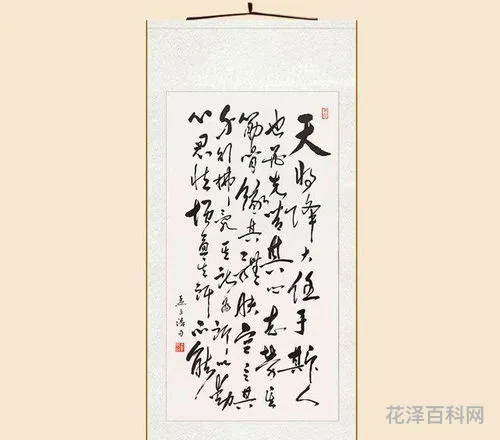 天将降大任于斯人
也必先苦其心志劳其
筋骨饿其体肤空乏其
身行拂乱其所为所以动
心忍性增益其所不能
孟子语句
花泽百科网